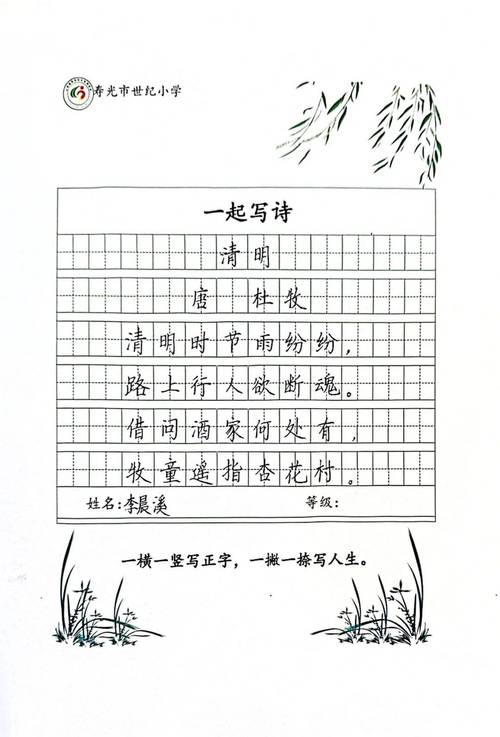 寿光市世纪小学
一起写诗
清明
唐 杜牧
清明时节雨纷纷，
路上行人欲断魂。
借问酒家何处有，
牧童遥指杏花村。
姓名：李晨溪 等级：
一横一竖写正字，一撇一捺写人生。